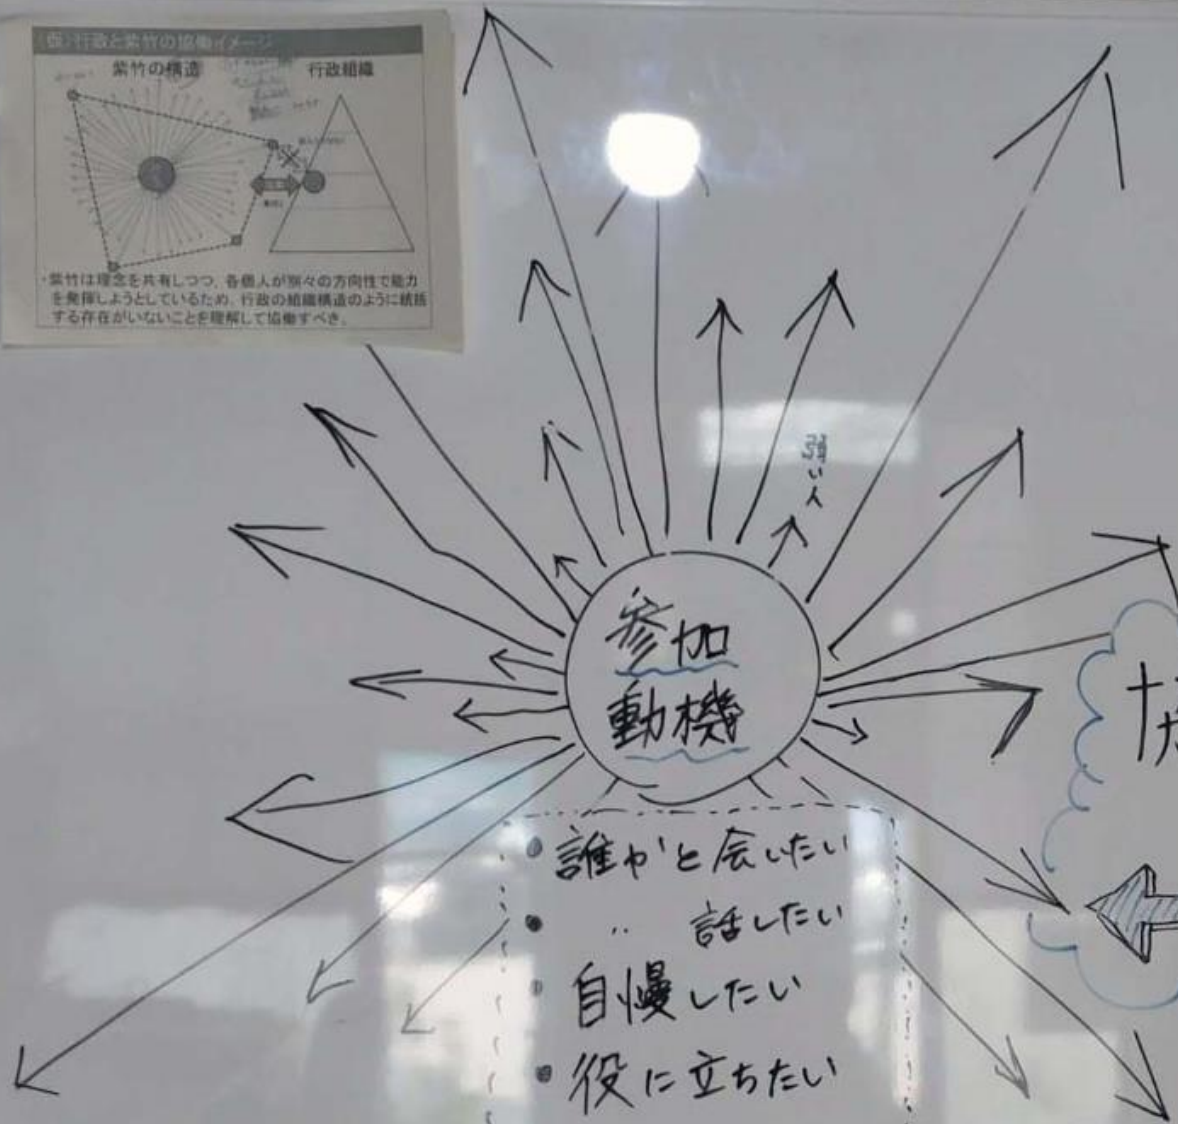 (仮)行政と紫竹の協働イメージ
紫竹の構造
行政組織
・紫竹は理念を共有しつつ、各個人が別々の方向性で能力
を発揮しようとしているため、行政の組織構造のように統括
する存在がいないことを理解して協働すべき。
弱い人
参加
動機
• 誰かと会いたい
• 〃 話したい
• 自慢したい
• 役に立ちたい